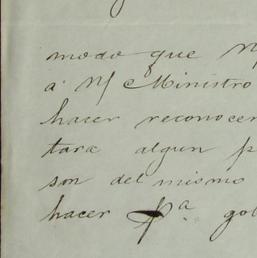 modo que
a M Ministro
hacer reconocer
tara algun p
son del mismo
hacer pª gol